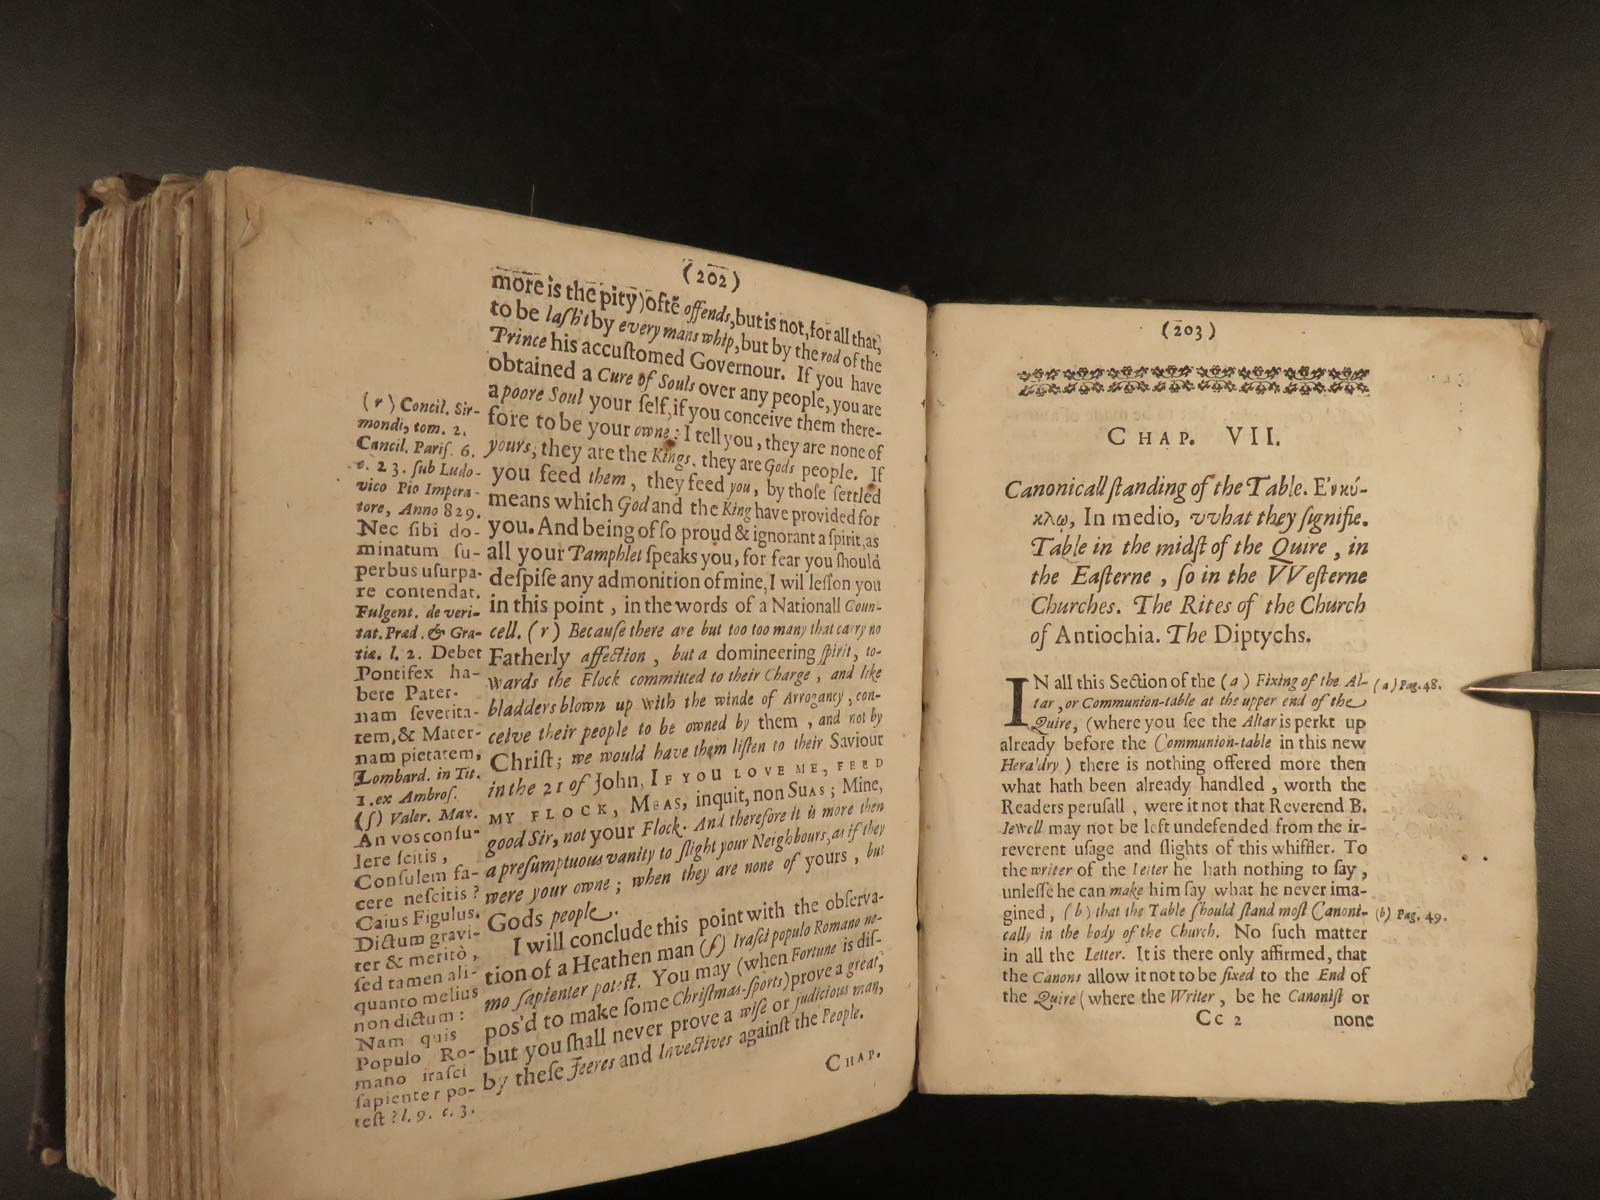 (202)
more is the pity) oftē offends, but is not, for all that,
to be laſh't by every mans whip, but by the rod of the
Prince his accuſtomed Governour. If you have
obtained a Cure of Souls over any people, you are
a poore Soul your ſelf, if you conceive them there-
fore to be your owne: I tell you, they are none of
yours, they are the Kings, they are Gods people. If
you feed them, they feed you, by thoſe ſettled
means which God and the King have provided for
you. And being of ſo proud & ignorant a ſpirit, as
all your Pamphlet ſpeaks you, for fear you ſhould
deſpiſe any admonition of mine, I wil leſſon you
in this point, in the words of a Nationall Coun-
cell. (r) Becauſe there are but too too many that carry no
Fatherly affection, but a domineering ſpirit, to-
wards the Flock committed to their Charge, and like
bladders blown up with the winde of Arrogancy, con-
ceive their people to be owned by them, and not by
Chriſt; we would have them liſten to their Saviour
in the 21 of John, IF YOU LOVE ME, FEED
MY FLOCK, MEAS, inquit, non SUAS; Mine,
good Sir, not your Flock. And therefore it is more then
a preſumptuous vanity to ſlight your Neighbours, as if they
were your owne; when they are none of yours, but
Gods people.
I will conclude this point with the obſerva-
tion of a Heathen man (ſ) Iraſci populo Romano ne-
mo ſapienter poteſt. You may (when Fortune is diſ-
pos'd to make ſome Chriſtmas-ſports) prove a great,
but you ſhall never prove a wiſe or judicious man,
by theſe Jeeres and Invectives againſt the People.
CHAP.
(r) Concil. Sir-
mondi, tom. 2.
Concil. Pariſ. 6.
c. 23. ſub Ludo-
vico Pio Impera-
tore, Anno 829.
Nec ſibi do-
minatum ſu-
perbus uſurpa-
re contendat.
Fulgent. de veri-
tat. Præd. & Gra-
tiæ. l. 2. Debet
Pontifex ha-
bere Pater-
nam ſeverita-
tem, & Mater-
nam pietatem,
Lombard. in Tit.
1. ex Ambroſ.
(ſ) Valer. Max.
An vos conſu-
lere ſcitis,
Conſulem fa-
cere neſcitis?
Caius Figulus.
Dictum gravi-
ter & meritò,
ſed tamen ali-
quanto melius
non dictum:
Nam quis
Populo Ro-
mano iraſci
ſapienter po-
teſt? l. 9. c. 3.
(203)
CHAP. VII.
Canonicall ſtanding of the Table. Ἐνκύ-
κλῳ, In medio, vvhat they ſignifie.
Table in the midſt of the Quire, in
the Eaſterne, ſo in the VVeſterne
Churches. The Rites of the Church
of Antiochia. The Diptychs.
IN all this Section of the (a) Fixing of the Al-
tar, or Communion-table at the upper end of the
Quire, (where you ſee the Altar is perkt up
already before the Communion-table in this new
Heraldry) there is nothing offered more then
what hath been already handled, worth the
Readers peruſall, were it not that Reverend B.
Iewell may not be left undefended from the ir-
reverent uſage and ſlights of this whiffler. To
the writer of the Letter he hath nothing to ſay,
unleſſe he can make him ſay what he never ima-
gined, (b) that the Table ſhould ſtand moſt Canoni-
cally in the body of the Church. No ſuch matter
in all the Letter. It is there only affirmed, that
the Canons allow it not to be fixed to the End of
the Quire (where the Writer, be he Canoniſt or
Cc 2 none
(a) Pag. 48.
(b) Pag. 49.